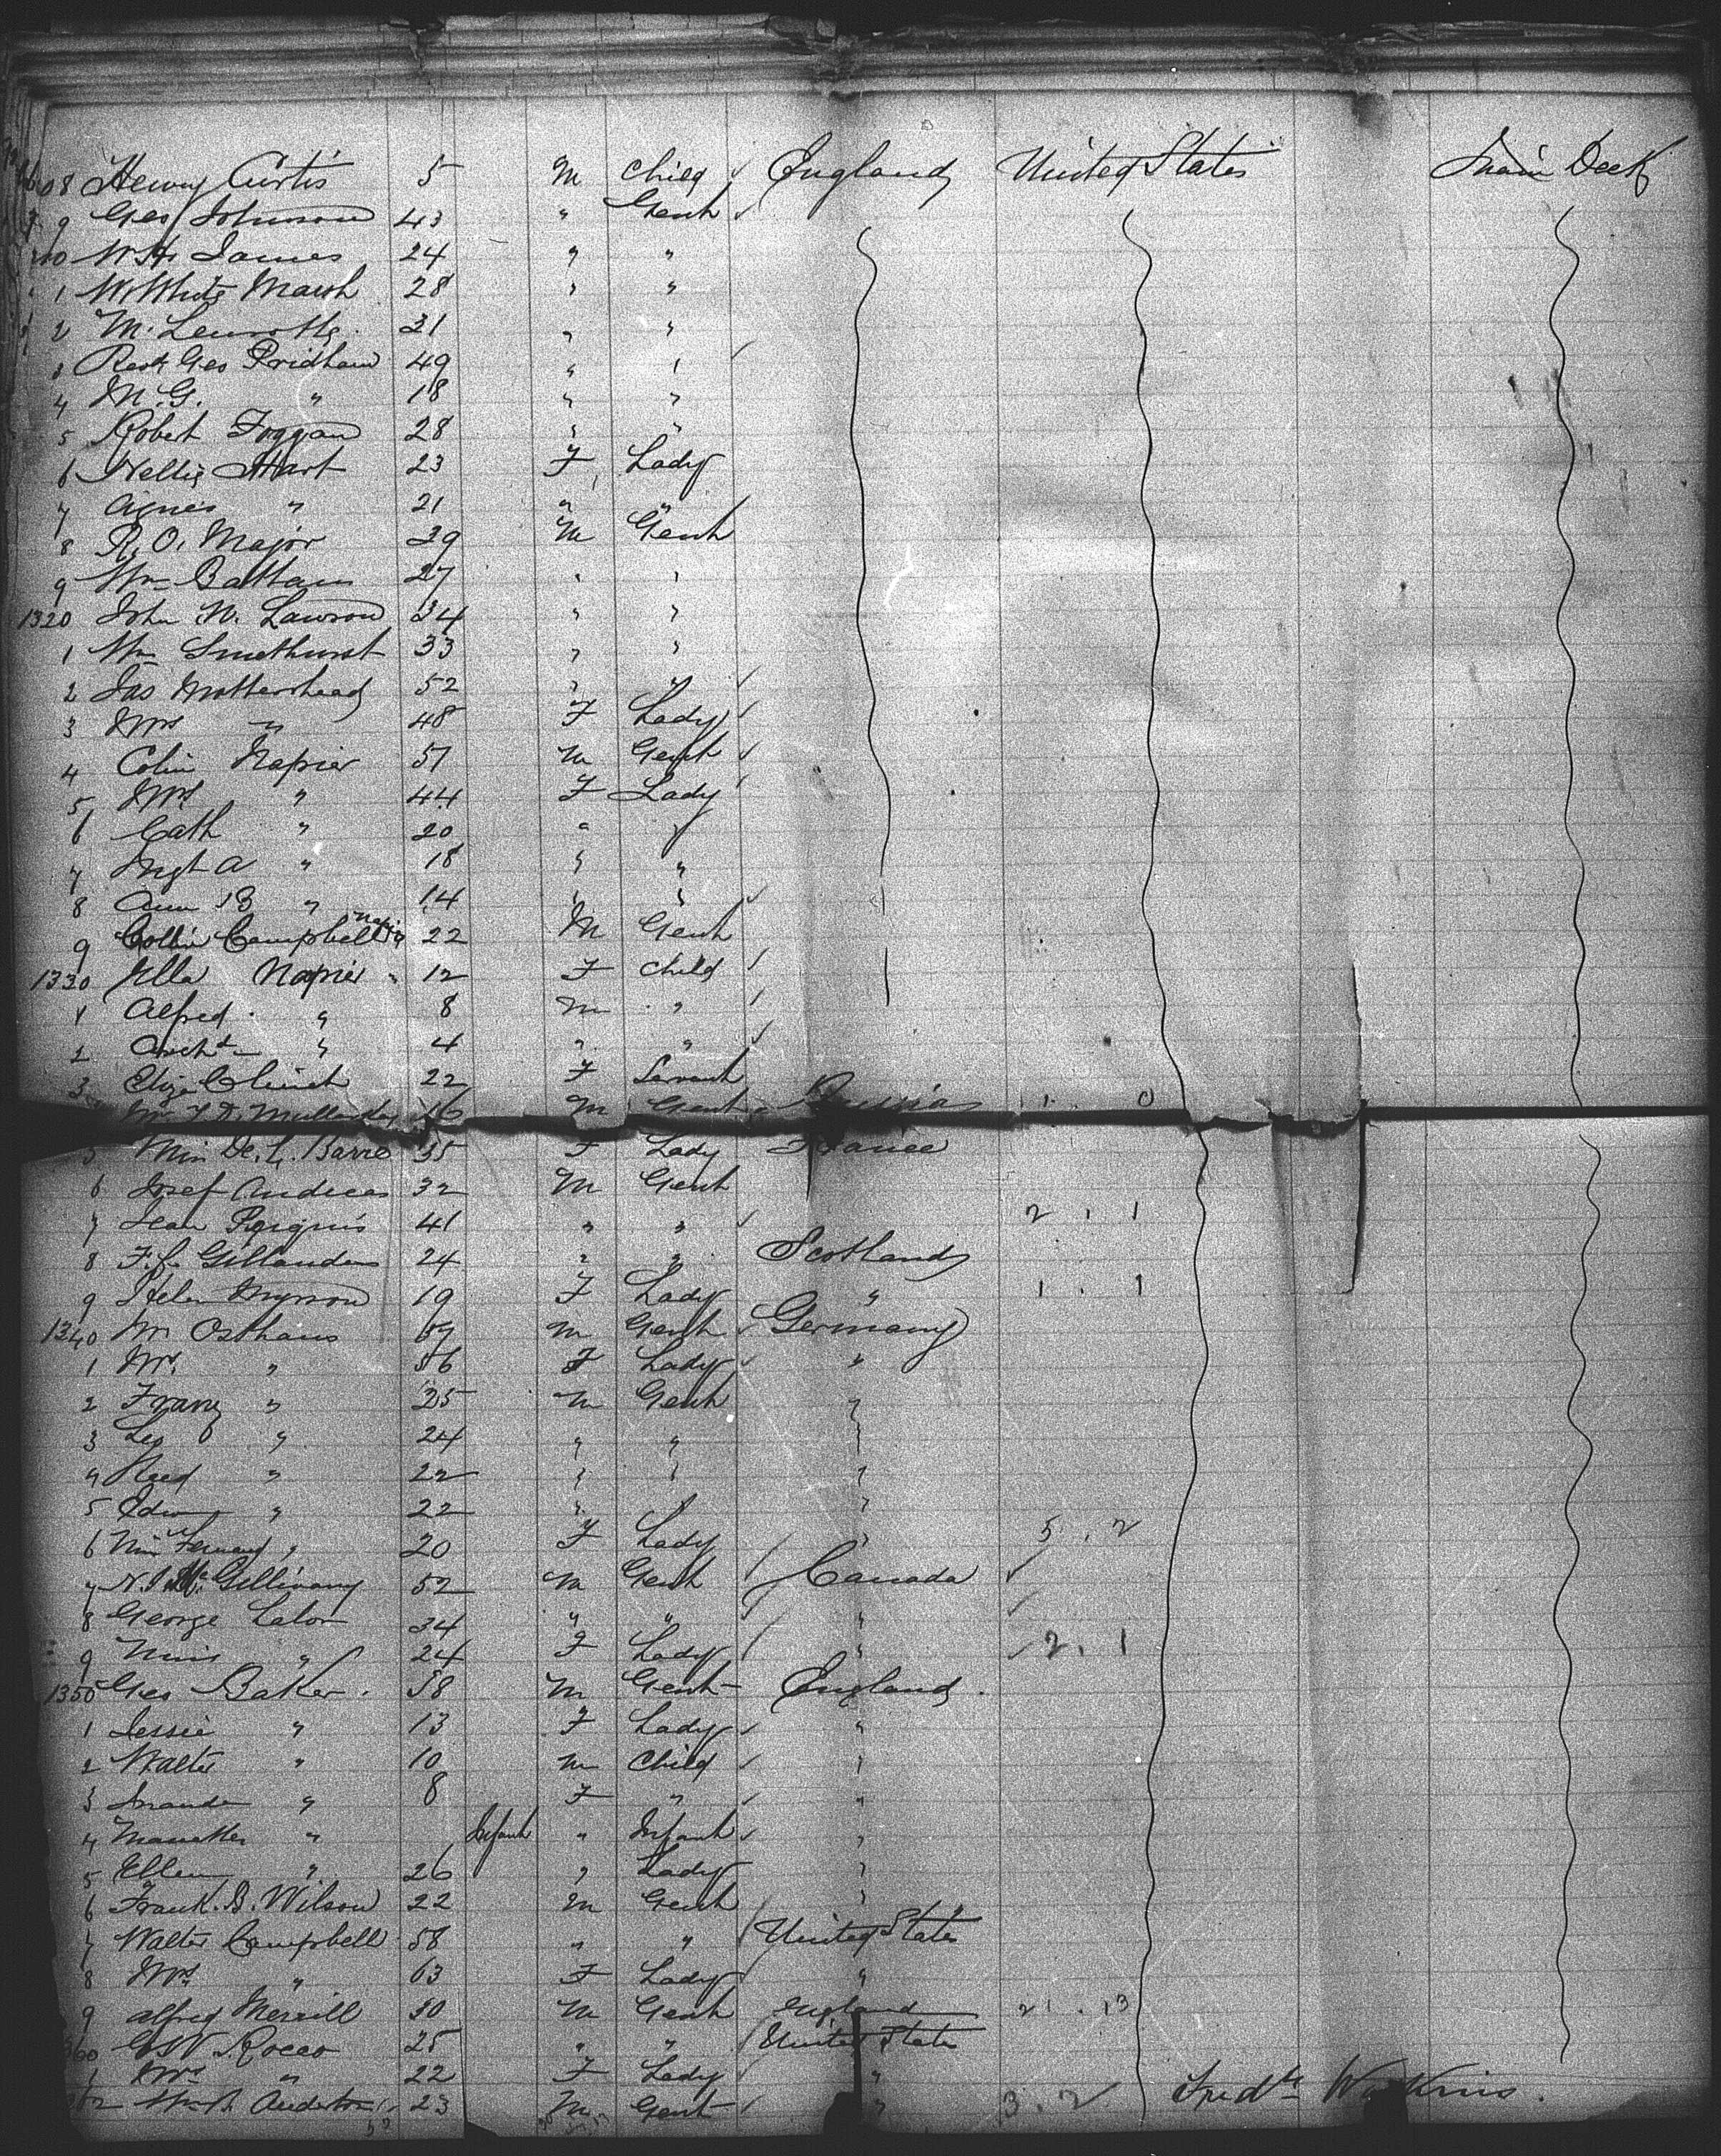 08 Henry Curtis 5 M Child England United States Main Deck
9 Geo Johnson 43 " Gent
10 W H James 24 " "
1 W White Marsh 28 " "
2 M. 31 " "
3 Geo Pridham 49 " "
4 M. G. " 18 " "
5 Robert Foggan 28 " "
6 Nellie Hart 23 F Lady
7 Agnes " 21 " "
8 R. O. Major 29 M Gent
9 Wm Battams 27 " "
1320 John W. Lawson 34 " "
1 Wm Smethurst 33 " "
2 Jas Mottershead 52 " "
3 Mrs " 48 F Lady
4 Colin Napier 51 M Gent
5 Mrs " 44 F Lady
6 Cath " 20 " "
7 Mgt A " 18 " "
8 Ann B " 14 " "
9 Collin Campbell Napier 22 M Gent
1330 Ella Napier " 12 F Child
1 Alfred " 8 M "
2 Archd " 4 " "
3 Eliz 22 F Servant
Mr 36 M Gent Russia 1 . 0
5 Miss De. L. Barre 35 F Lady France
6 Josef Andreas 32 M Gent
7 Jean 41 " " 2 . 1
8 F. C. Gillanders 24 " " Scotland
9 Helen 19 F Lady " 1 . 1
1340 W. Osthaus 59 M Gent Germany
1 Mrs " 56 F Lady "
2 Franz " 25 M Gent "
3 Leo " 24 " " "
4 " 22 " " "
5 Edw " 22 " "
6 Miss " 20 F Lady " 5 . 2
7 N. McGillivary 52 M Gent Canada
8 George Lalor 34 " " "
9 Miss " 24 F Lady " 2 . 1
1350 Geo Baker 58 M Gent England
1 Jessie " 13 F Lady "
2 Walter " 10 M Child "
3 Maude " 8 F " "
4 " Infant " Infant "
5 Ellen " 26 " Lady "
6 Frank. B. Wilson 22 M Gent "
7 Walter Campbell 58 " " United States
8 Mrs " 63 F Lady "
9 Alfred Merrill 30 M Gent England 21 . 13
360 Rocco 25 " " United States
1 Mrs " 22 F Lady "
362 Anderton 23 M Gent " 3 . 2 Fredk Watkins.